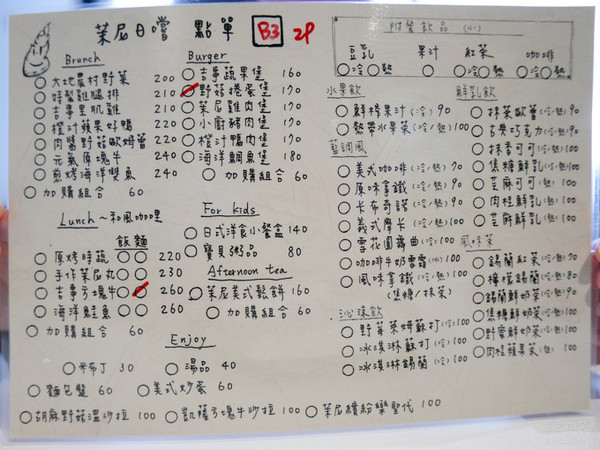 茉尼日嚐 點單 B3 2P
附餐飲品(小)
豆乳 果汁 紅茶 咖啡
冷 熱 冷 熱 冷 熱
Brunch
大地農村野菜 200
特製雞腿排 210
吉事里肌雞 210
橙汁蘋果好鴨 220
肉醬野菇歐姆蕾 220
元氣原塊牛 240
煎烤海洋雙魚 240
加購組合 60
Burger
吉事蔬果堡 160
野菇捲蛋堡 170
茉尼雞肉堡 170
小廚豬肉堡 170
橙汁鴨肉堡 190
海洋鯛魚堡 180
加購組合 60
Lunch～和風咖哩
飯 麵
厚烤時蔬 220
手作茉尼丸 230
吉事方塊牛 260
海洋鮭魚 260
加購組合 60
For kids
日式洋食小餐盒 140
寶貝粥品 80
Afternoon tea
茉尼美式鬆餅 160
加購組合 60
Enjoy
布丁 30
湯品 40
麵包盤 60
美式炒蛋 60
胡麻野菇溫沙拉 100
凱薩方塊牛沙拉 100
茉尼繽紛樂聖代 100
水果飲
鮮榨果汁(冷) 90
熱帶水果茶(冷/熱) 100
藍調風
美式咖啡(冷/熱) 70
原味拿鐵(冷/熱) 90
卡布奇諾(冷/熱) 90
義式摩卡(冷/熱) 100
雪花圓舞曲(冷/熱) 100
咖啡牛奶雪霜(冷) 100
風味拿鐵(冷/熱) 100
(焦糖/抹茶)
沁涼飲
野莓萊姆蘇打(冷) 100
冰淇淋蘇打(冷) 100
冰淇淋錫蘭(冷) 100
鮮乳飲
抹茶歐蕾(冷/熱) 90
古典巧克力(冷/熱) 90
抹香可可(冷/熱) 100
焦糖鮮乳(冷/熱) 100
芝麻可可(熱) 100
肉桂鮮乳(熱) 100
芝麻鮮乳(熱) 100
風味茶
錫蘭紅茶(冷/熱) 70
檸檬錫蘭(冷/熱) 80
錫蘭鮮奶茶(冷/熱) 90
焦糖鮮奶茶(冷/熱) 100
野蜜鮮奶茶(冷/熱) 100
肉桂蘋果茶(熱) 100